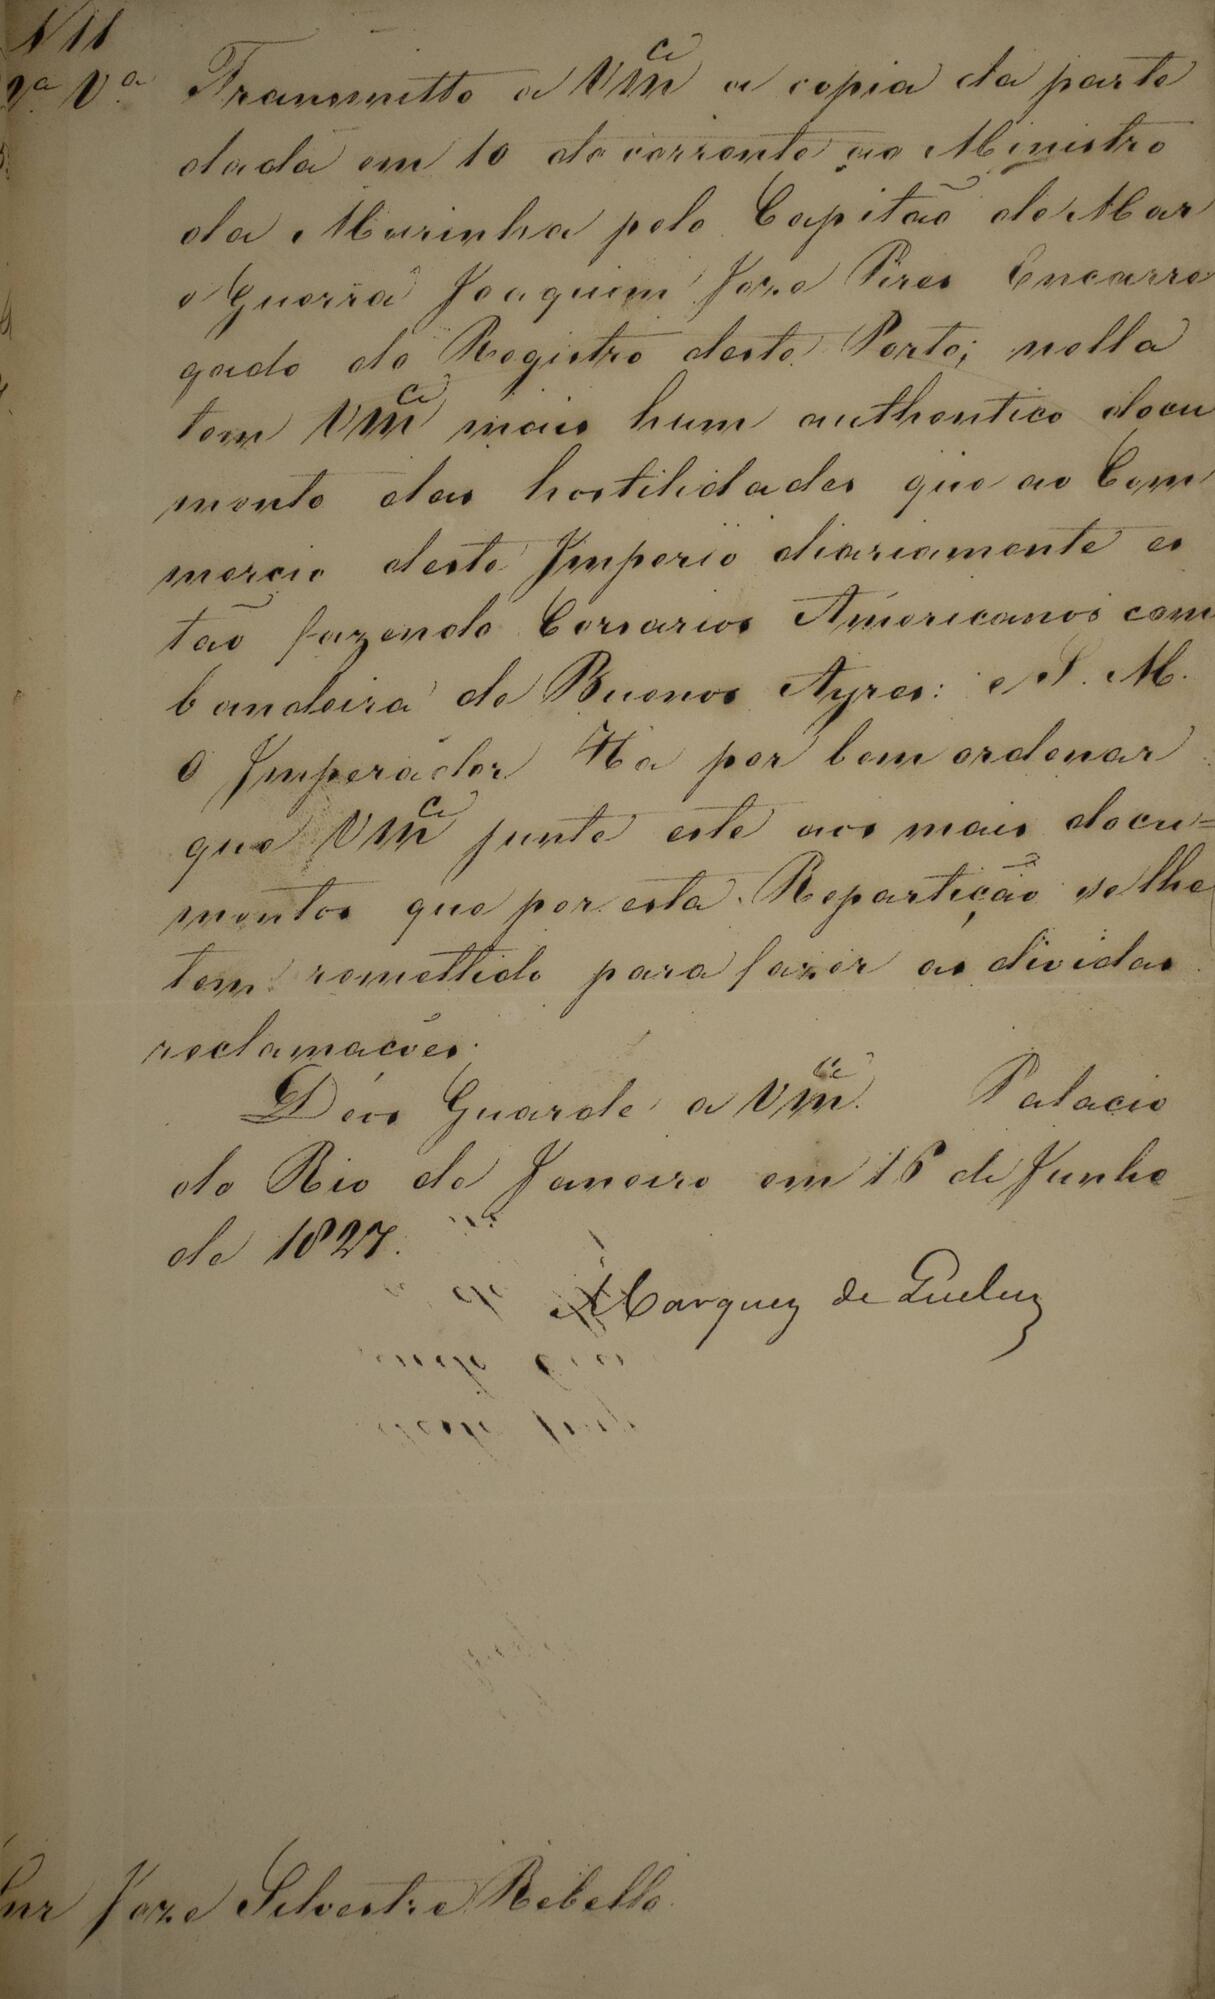 111
2.ª V.ª
Transmitto a Vm.ce a copia da parte
dada em 10 do corrente ao Ministro
da Marinha pelo Capitão de Mar
e Guerra Joaquim Joze Pires Encarre
gado do Registro deste Porto; nella
tem Vm.ce mais hum authentico docu
mento das hostilidades que ao Com
mercio deste Imperio diariamente es
tão fazendo Corsarios Americanos com
bandeira de Buenos Ayres: e S. M.
O Imperador Ha por bem ordenar
que Vm.ce junte este aos mais docu=
mentos que por esta Repartição se lhe
tem remettido para fazer as dividas
reclamações.
Deos Guarde a Vm.ce Palacio
do Rio de Janeiro em 16 de Junho
de 1827.
Marquez de Queluz
Snr Joze Silvestre Rebello.